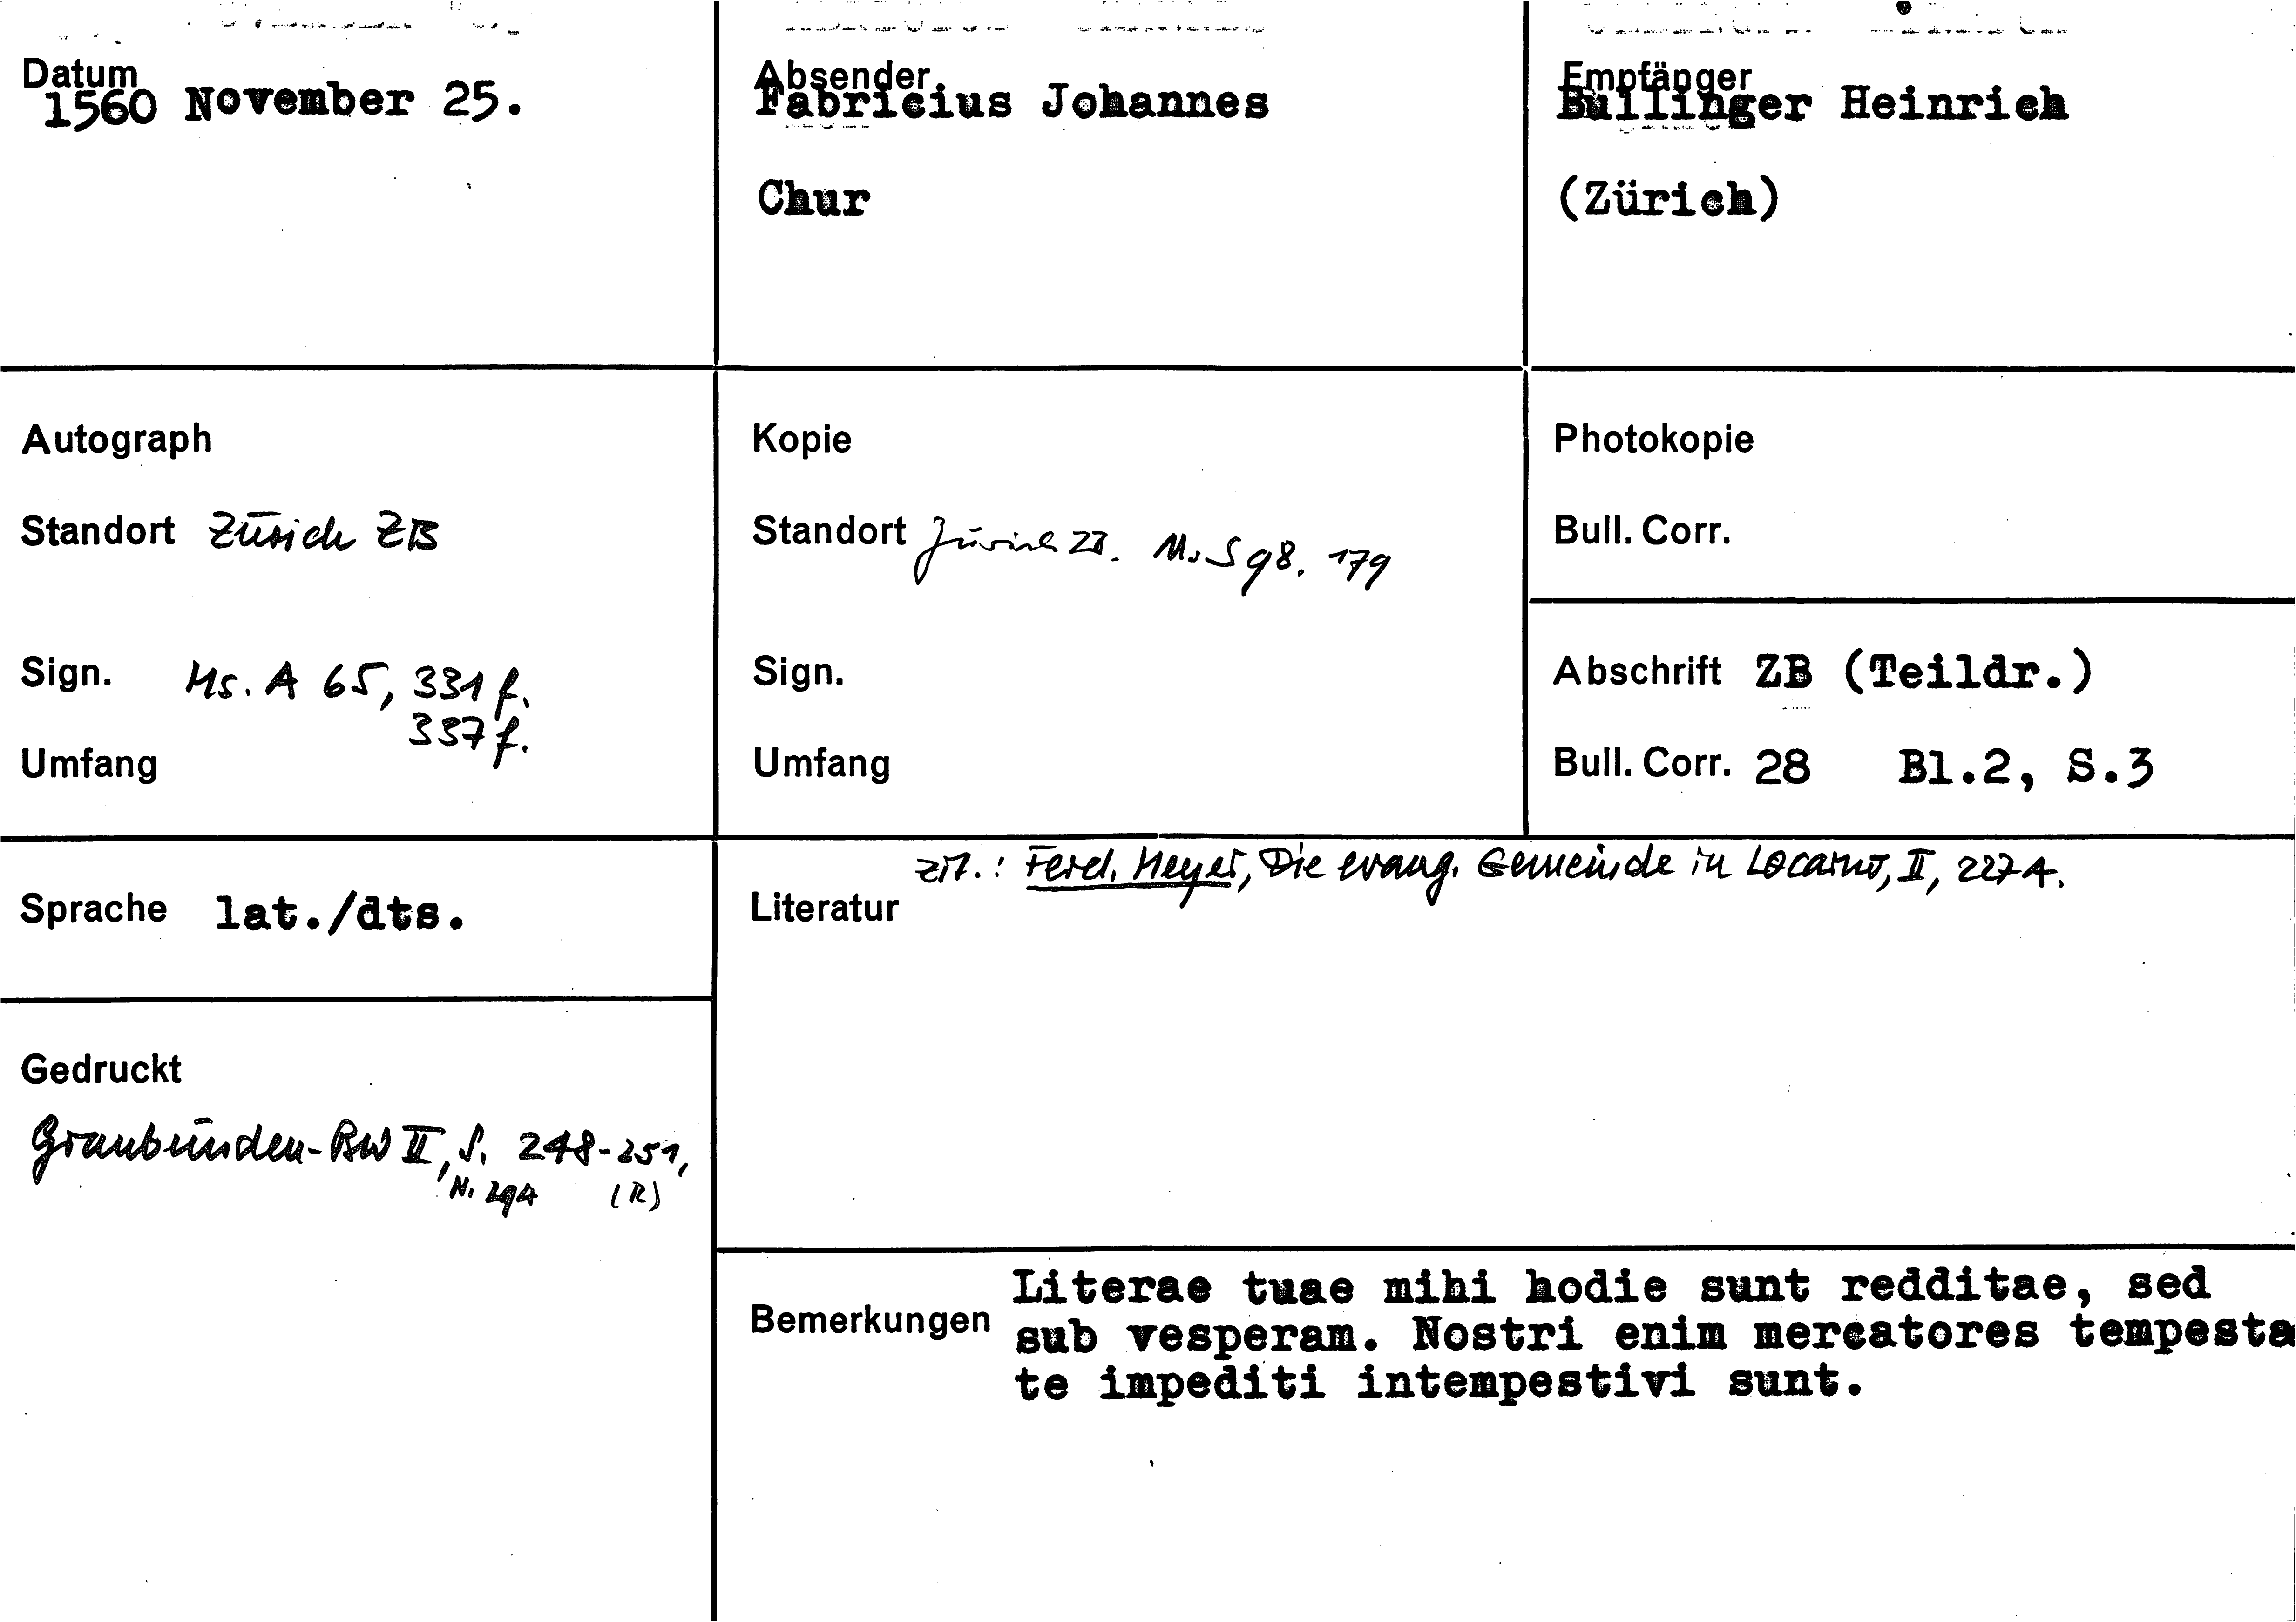 Datum
1560 November 25.
Absender
Fabricius Johannes
Chur
Empfänger
Bullinger Heinrich
(Zürich)
Autograph
Standort Zürich ZB
Sign. Ms. A 65, 331 f.
337 f.
Umfang
Kopie
Standort Zürich ZB. Ms S 98. 179
Sign.
Umfang
Photokopie
Bull. Corr.
Abschrift ZB (Teildr.)
Bull. Corr. 28 Bl.2, S.3
Sprache lat./dts.
Gedruckt
Graubünden-BW II, S. 248-251,
N. 294 (R)
zit.: Ferd. Meyer, Die evang. Gemeinde in Locarno, II, 227 A.
Literatur
Bemerkungen Literae tuae mihi hodie sunt redditae, sed
sub vesperam. Nostri enim mercatores tempesta
te impediti intempestivi sunt.